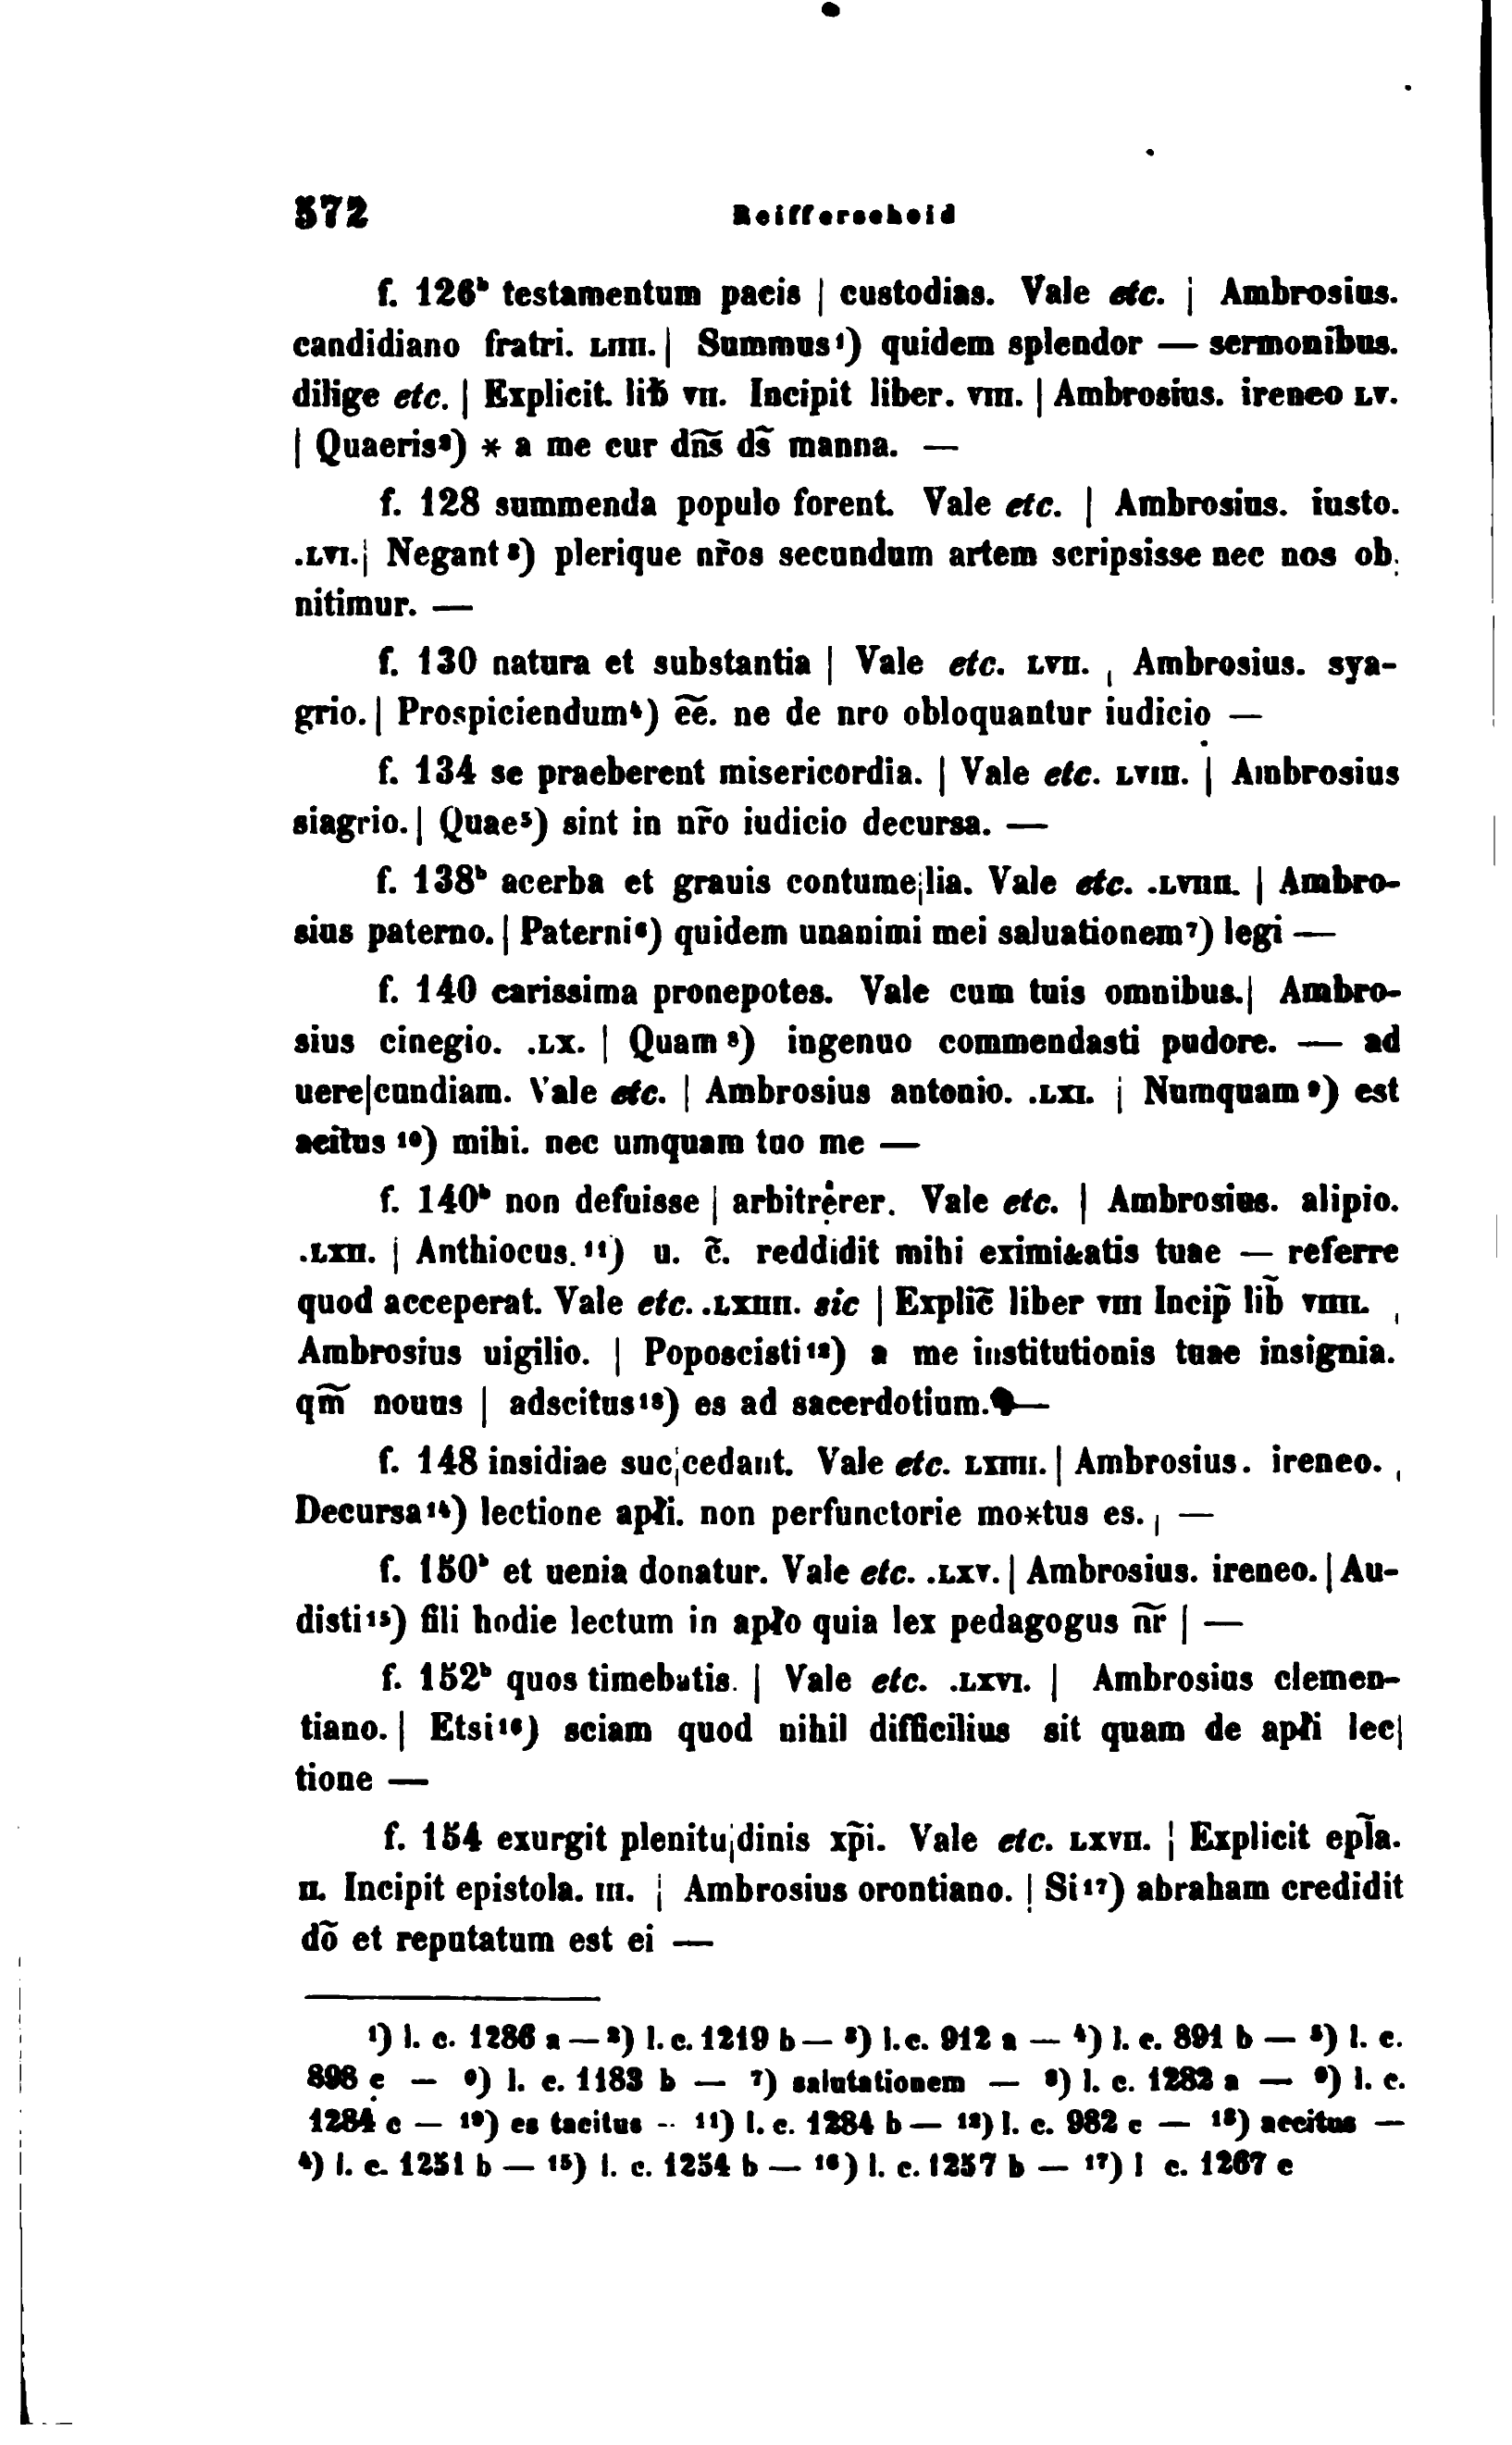 572 Reifferscheid
f. 126ᵇ testamentum pacis | custodias. Vale etc. | Ambrosius.
candidiano fratri. LIIII. | Summus¹) quidem splendor — sermonibus.
dilige etc. | Explicit. lib̄ VII. Incipit liber. VIII. | Ambrosius. ireneo LV.
| Quaeris²) * a me cur dn̄s ds̄ manna. —
f. 128 summenda populo forent. Vale etc. | Ambrosius. iusto.
.LVI. | Negant³) plerique nr̄os secundum artem scripsisse nec nos ob|
nitimur. —
f. 130 natura et substantia | Vale etc. LVII. | Ambrosius. sya-
grio. | Prospiciendum⁴) ēē. ne de nro obloquantur iudicio —
f. 134 se praeberent misericordia. | Vale etc. LVIII. | Ambrosius
siagrio. | Quae⁵) sint in nr̄o iudicio decursa. —
f. 138ᵇ acerba et grauis contume|lia. Vale etc. .LVIIII. | Ambro-
sius paterno. | Paterni⁶) quidem unanimi mei saluationem⁷) legi —
f. 140 carissima pronepotes. Vale cum tuis omnibus. | Ambro-
sius cinegio. .LX. | Quam⁸) ingenuo commendasti pudore. — ad
uere|cundiam. Vale etc. | Ambrosius antonio. .LXI. | Numquam⁹) est
acitus¹⁰) mihi. nec umquam tuo me —
f. 140ᵇ non defuisse | arbitrẹrer. Vale etc. | Ambrosius. alipio.
.LXII. | Anthiocus.¹¹) u. c̄. reddidit mihi eximi&atis tuae — referre
quod acceperat. Vale etc. .LXIIII. sic | Explic̄ liber VIII Incip̄ lib̄ VIIII. |
Ambrosius uigilio. | Poposcisti¹²) a me institutionis tuae insignia.
qm̄ nouus | adscitus¹³) es ad sacerdotium. —
f. 148 insidiae suc|cedant. Vale etc. LXIIII. | Ambrosius. ireneo. |
Decursa¹⁴) lectione apłi. non perfunctorie mo*tus es. | —
f. 150ᵇ et uenia donatur. Vale etc. .LXV. | Ambrosius. ireneo. | Au-
disti¹⁵) fili hodie lectum in apło quia lex pedagogus nr̄ | —
f. 152ᵇ quos timebatis. | Vale etc. .LXVI. | Ambrosius clemen-
tiano. | Etsi¹⁶) sciam quod nihil difficilius sit quam de apłi lec|
tione —
f. 154 exurgit plenitu|dinis xp̄i. Vale etc. LXVII. | Explicit epl̄a.
II. Incipit epistola. III. | Ambrosius orontiano. | Si¹⁷) abraham credidit
dō et reputatum est ei —
¹) l. c. 1286 a — ²) l. c. 1219 b — ³) l. c. 912 a — ⁴) l. c. 891 b — ⁵) l. c.
898 c — ⁶) l. c. 1183 b — ⁷) salutationem — ⁸) l. c. 1282 a — ⁹) l. c.
1284 c — ¹⁰) es tacitus -- ¹¹) l. c. 1284 b — ¹²) l. c. 982 c — ¹³) accitus —
⁴) l. c. 1251 b — ¹⁵) l. c. 1254 b — ¹⁶) l. c. 1257 b — ¹⁷) l c. 1267 c